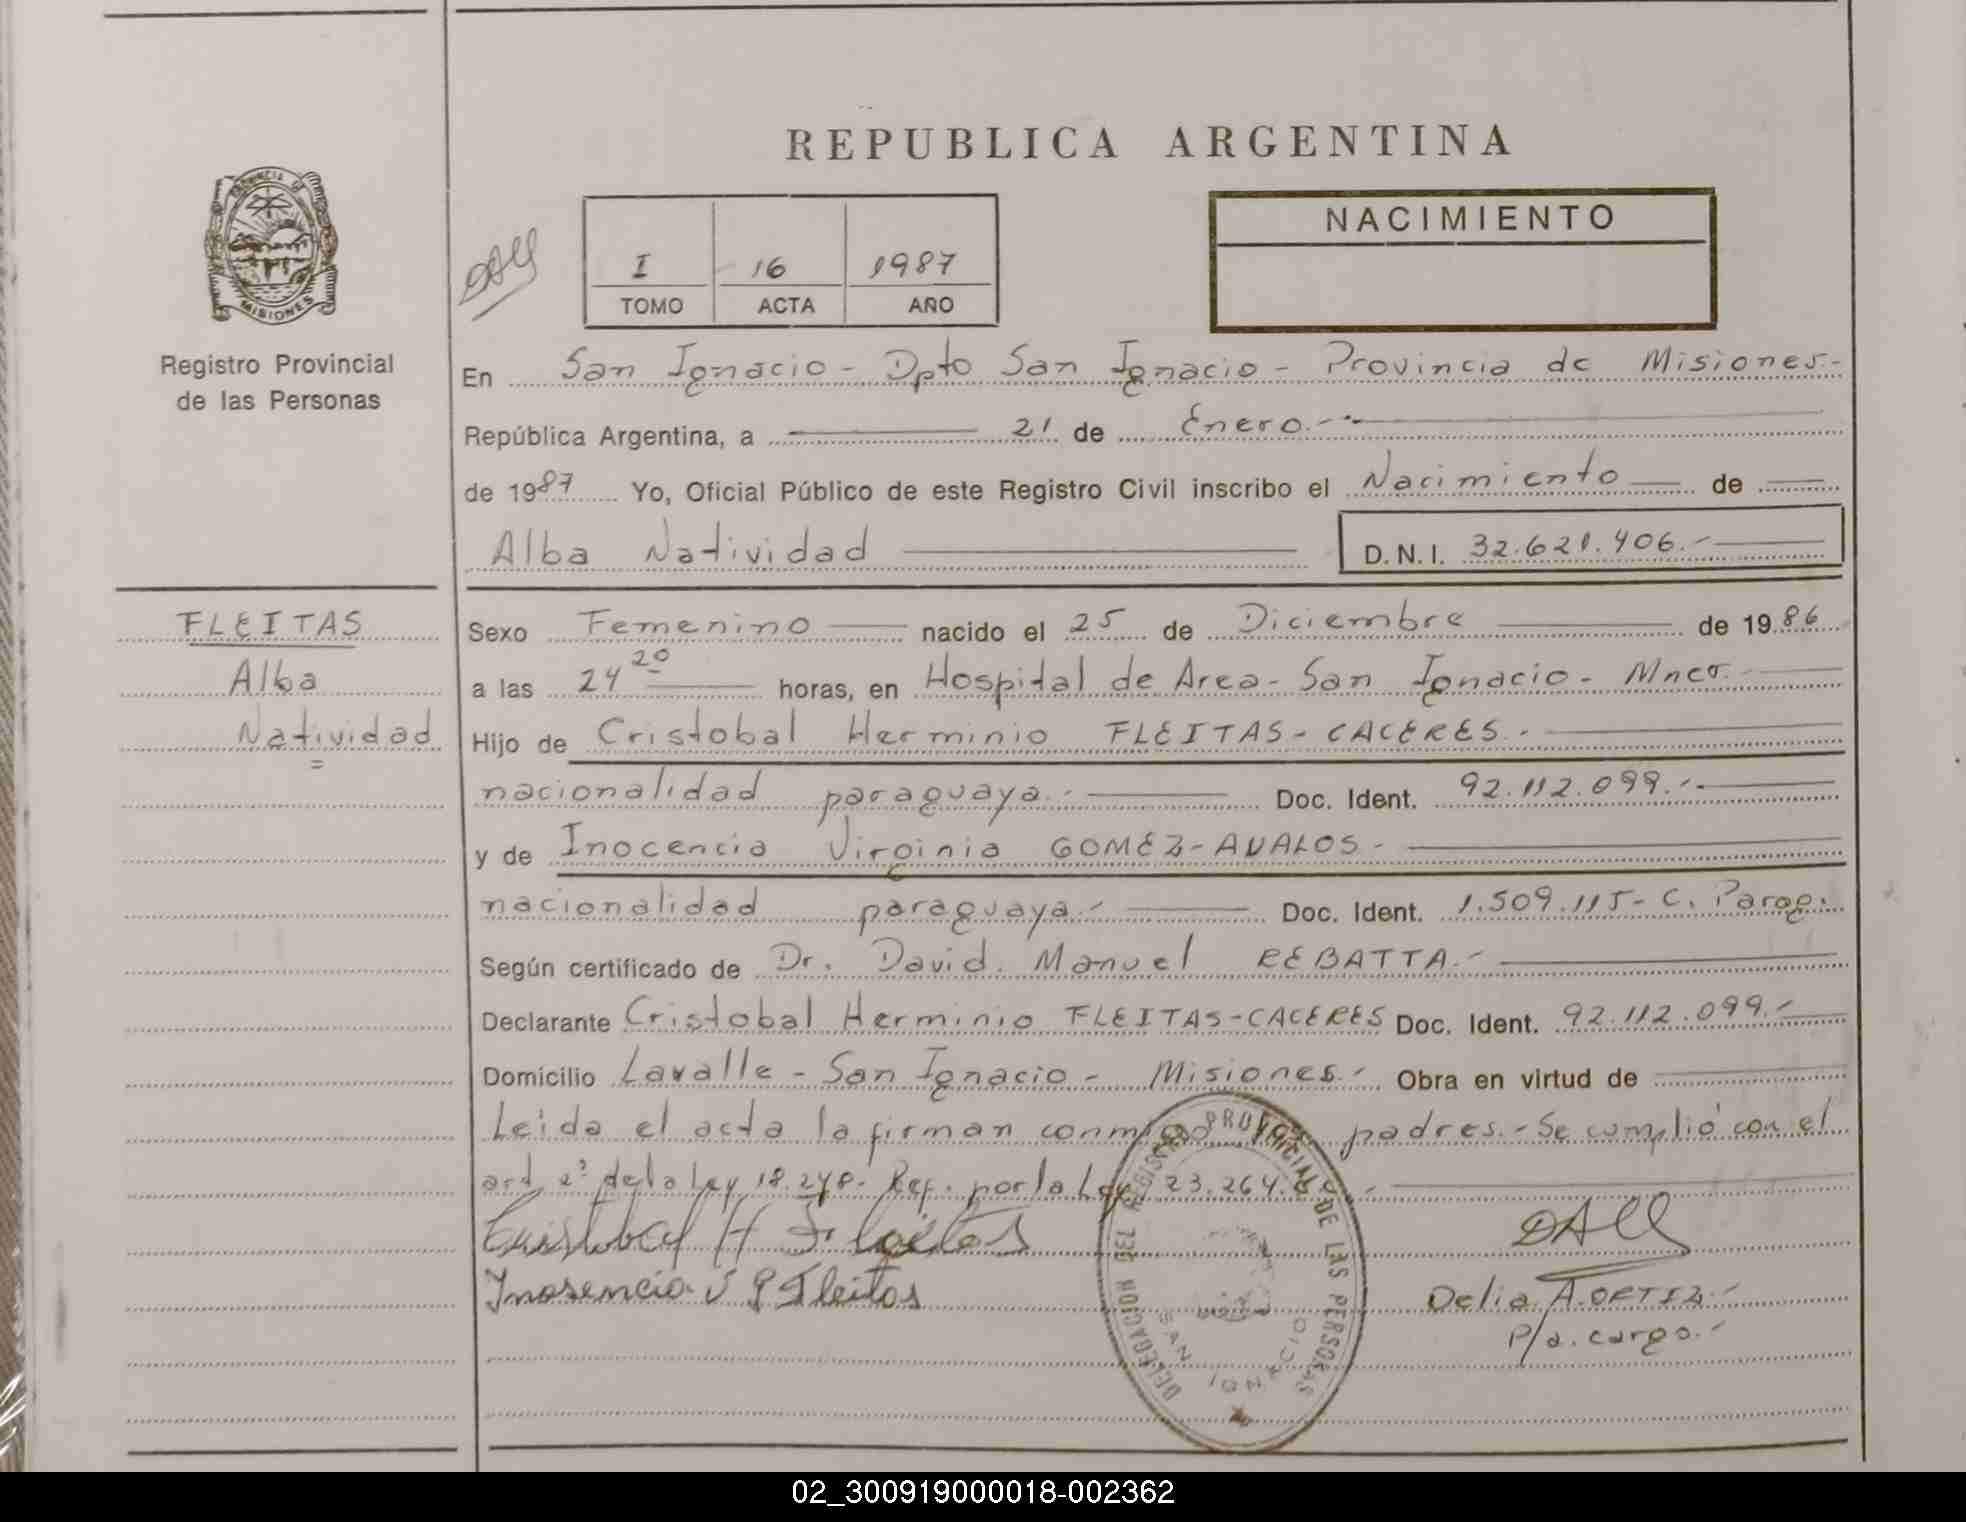 REPUBLICA ARGENTINA
PROVINCIA DE
MISIONES
Registro Provincial
de las Personas
I 16 1987
TOMO ACTA AÑO
NACIMIENTO
En San Ignacio - Dpto San Ignacio - Provincia de Misiones.-
República Argentina, a 21 de Enero.-
de 1987 Yo, Oficial Público de este Registro Civil inscribo el Nacimiento de
Alba Natividad D.N.I. 32.621.406.-
FLEITAS
Alba
Natividad
Sexo Femenino nacido el 25 de Diciembre de 1986
a las 24 20 horas, en Hospital de Area - San Ignacio - Mnes.
Hijo de Cristobal Herminio FLEITAS - CACERES.-
nacionalidad paraguaya.- Doc. Ident. 92.112.099.-
y de Inocencia Virginia GOMEZ - AVALOS.-
nacionalidad paraguaya.- Doc. Ident. 1.509.115 - C. Parag.
Según certificado de Dr. David Manuel REBATTA.-
Declarante Cristobal Herminio FLEITAS - CACERES Doc. Ident. 92.112.099.-
Domicilio Lavalle - San Ignacio - Misiones.- Obra en virtud de
Leida el acta la firman conmigo padres.- Se cumplió con el
art. 2º de la Ley 18.248. Ref. por la Ley 23.264.-
Cristobal H Fleitas
Inosencia V G Fleitas
Delia A. ORTIZ.-
P/a. cargo.-
DELEGACION DEL REGISTRO PROVINCIAL DE LAS PERSONAS
SAN IGNACIO
02_300919000018-002362